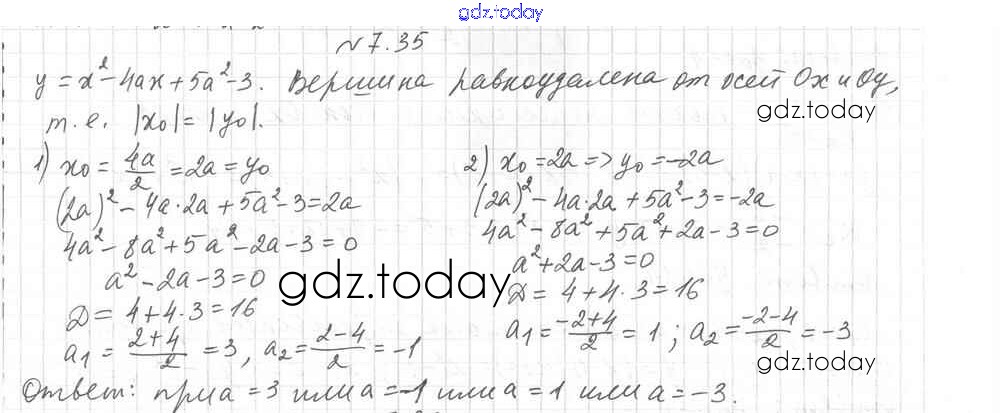 gdz.today
№7.35
y = x² - 4ax + 5a² - 3. Вершина равноудалена от осей Ox и Oy,
gdz.today
т.е. |x₀| = |y₀|.
1) x₀ = 4a/2 = 2a = y₀
(2a)² - 4a·2a + 5a² - 3 = 2a
4a² - 8a² + 5a² - 2a - 3 = 0
a² - 2a - 3 = 0
D = 4 + 4·3 = 16
a₁ = (2+4)/2 = 3, a₂ = (2-4)/2 = -1
2) x₀ = 2a => y₀ = -2a
(2a)² - 4a·2a + 5a² - 3 = -2a
4a² - 8a² + 5a² + 2a - 3 = 0
a² + 2a - 3 = 0
D = 4 + 4·3 = 16
a₁ = (-2+4)/2 = 1; a₂ = (-2-4)/2 = -3
gdz.today
gdz.today
Ответ: при a = 3 или a = -1 или a = 1 или a = -3.